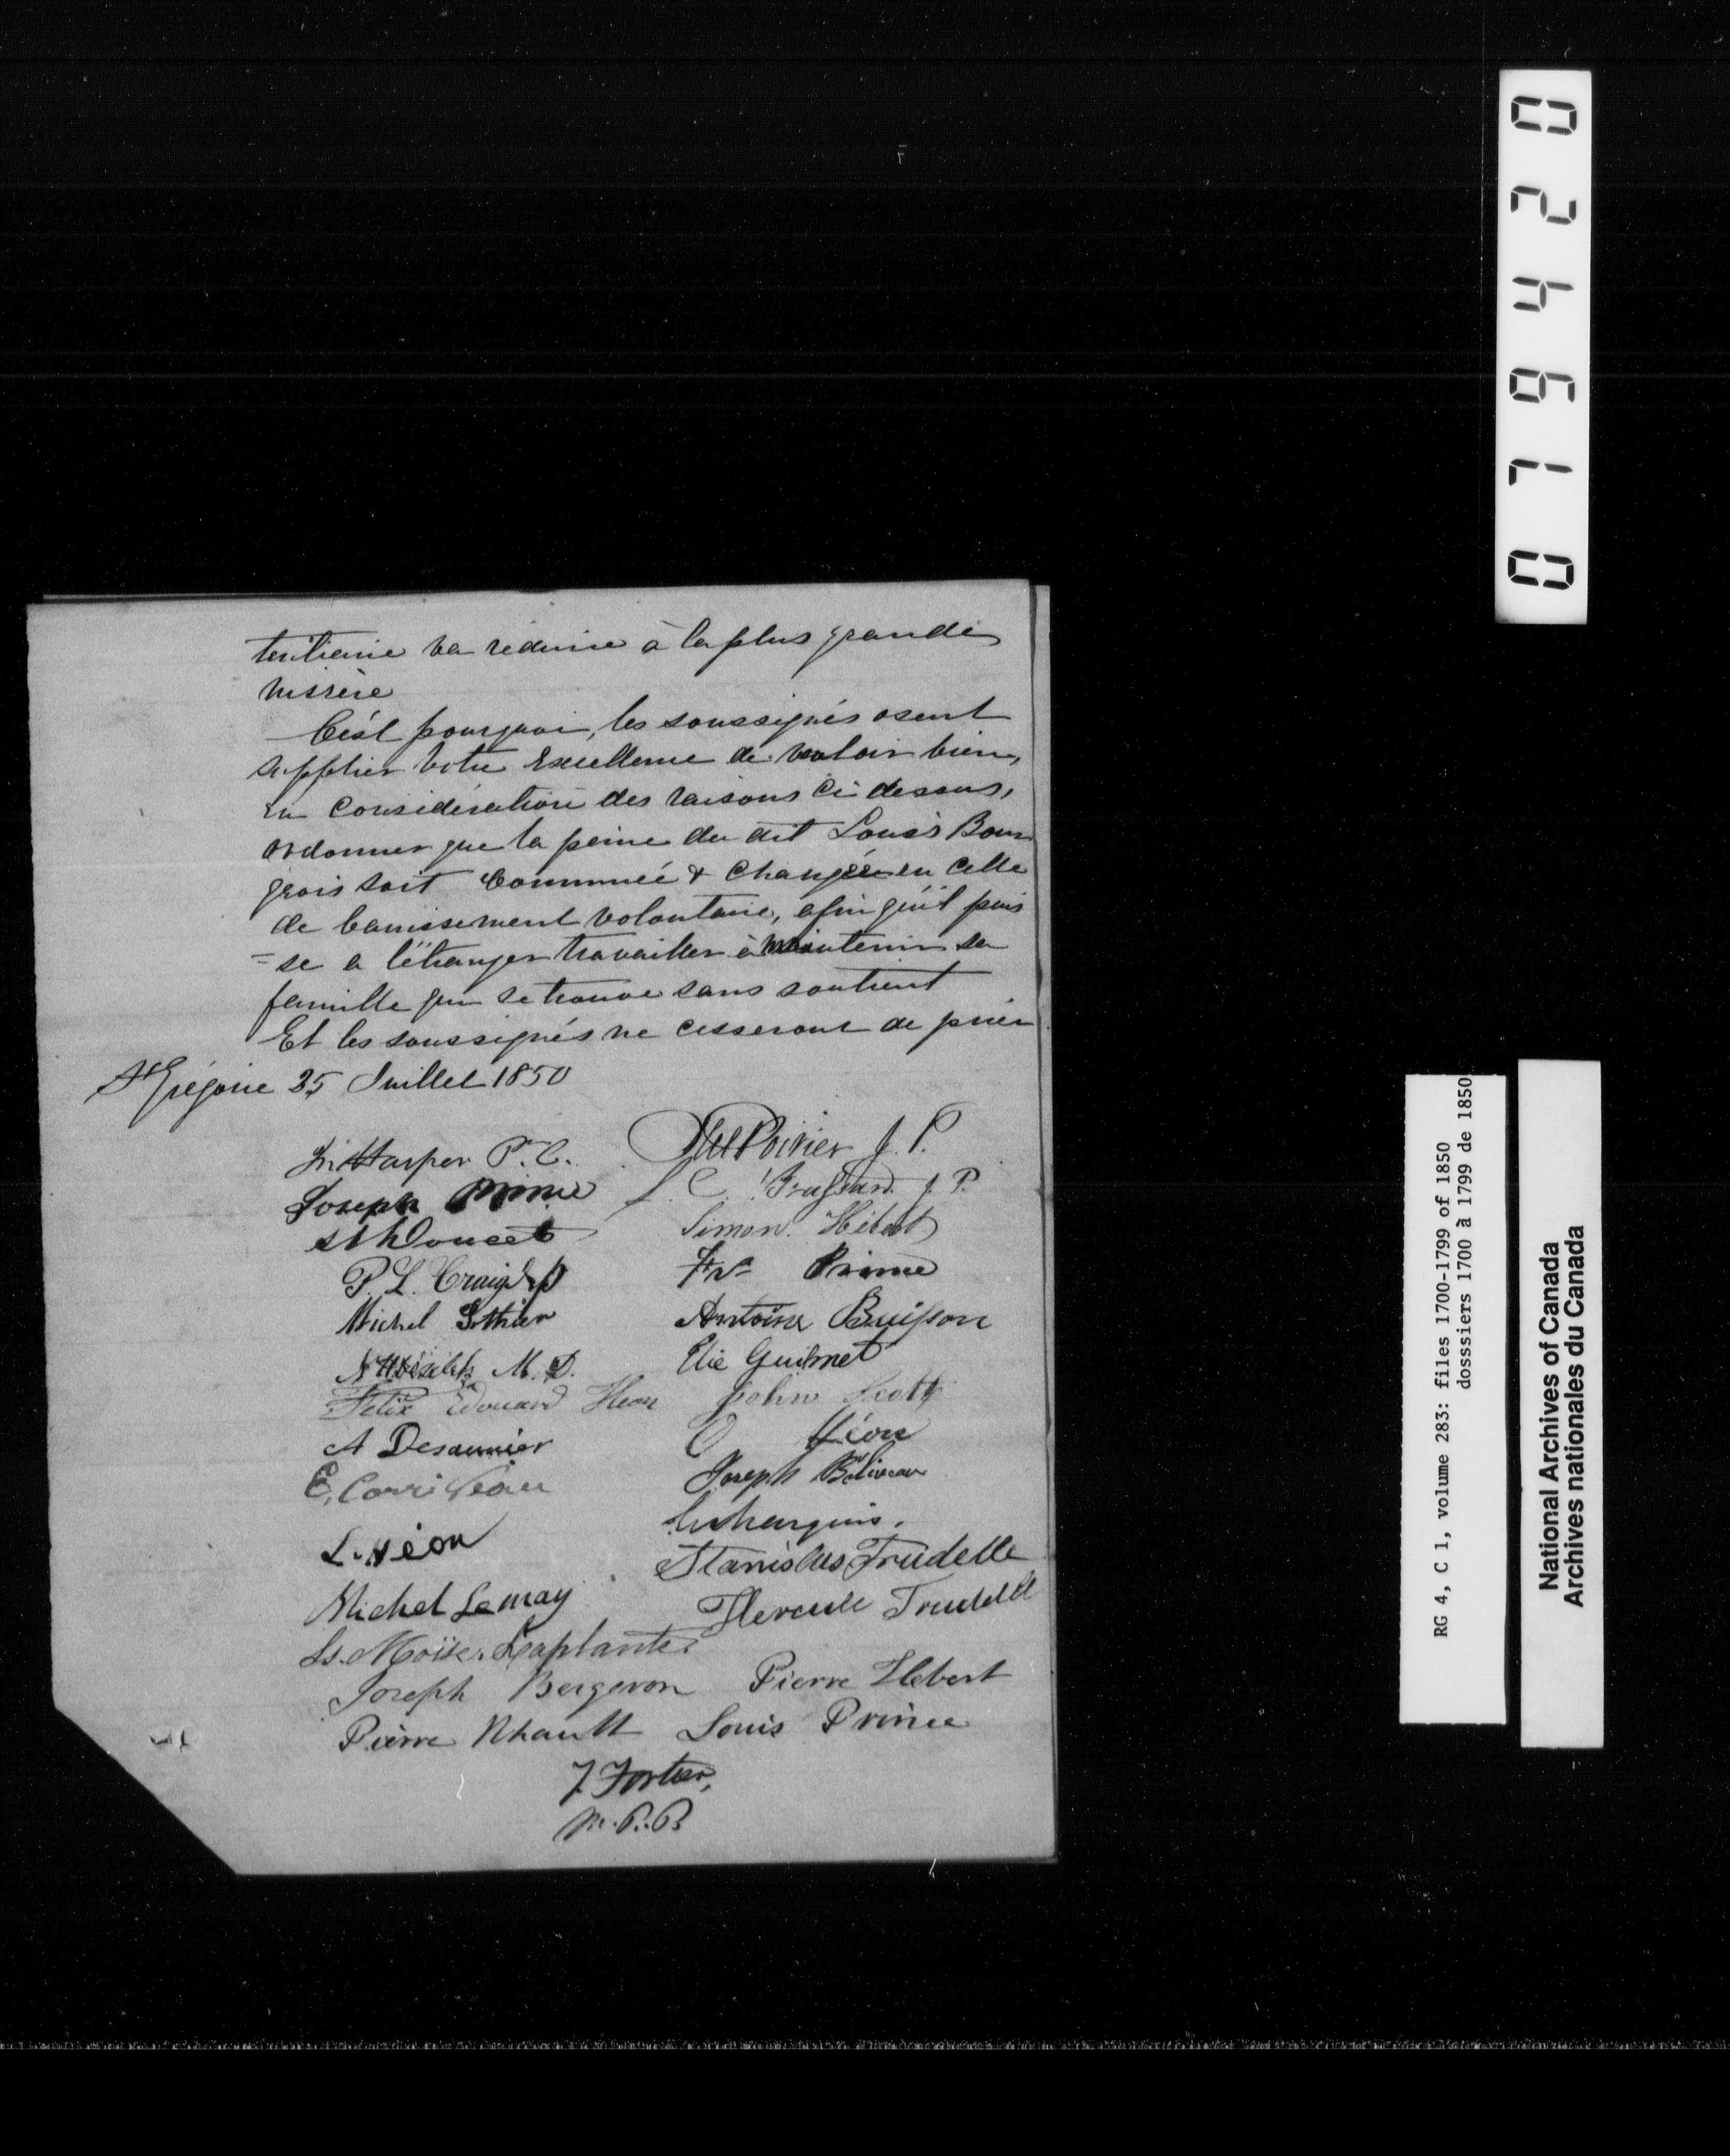 tentiaire va réduire à la plus grande
missère
C'est pourquoi, les soussignés osent
supplier Votre Excellence de vouloir bien,
en considération des raisons ci-dessus,
ordonner que la peine du dit Louis Bour
geois soit Commuée & changée en celle
de banissement volontaire, afin qu'il puis
=se a l'étranger travailler à maintenir sa
famille qui se trouve sans soutient
Et les soussignés ne cesseront de prier
St Grégoire 25 Juillet 1850
Harper P. C.
Poirier J. P.
Joseph Prince
L. C. Brassard J. P.
Doucet
Simon Hébert
P. L. Craig
Frs Prince
Michel
Antoine Buisson
M. D.
Elie Guilmet
Felix Edouard Heon
John Scott
A Desaunier
O Héon
E. Corriveau
Joseph Beliveau
L. Héon
Stanislas Trudelle
Michel Lemay
Hercule Trudelle
Ls. Moïse Laplante
Joseph Bergeron
Pierre Hebert
Pierre Rhault
Louis Prince
T. Fortier,
M.P.P.
079420
RG 4, C 1, volume 283: files 1700-1799 of 1850
dosssiers 1700 à 1799 de 1850
National Archives of Canada
Archives nationales du Canada